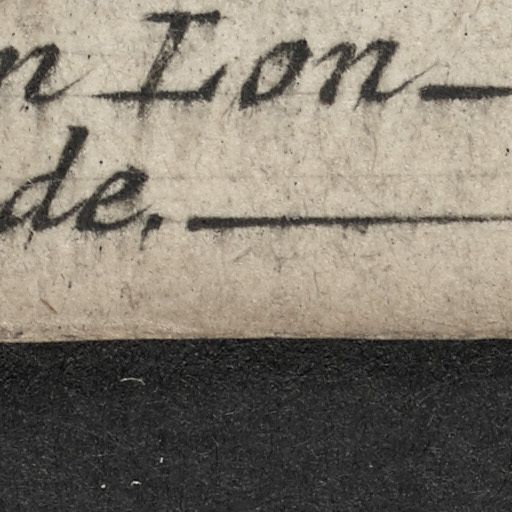 n Lon—
de.—